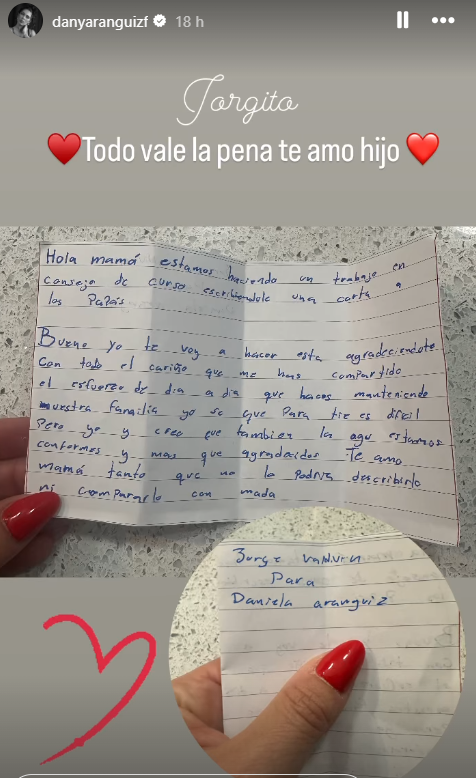 danyaranguizf 18 h
Jorgito
Todo vale la pena te amo hijo
Hola mamá estamos haciendo un trabajo en
consejo de curso escribiendole una carta a
los Papás
Bueno yo te voy a hacer esta agradeciendote
Con todo el cariño que me has compartido
el esfuerzo de dia a dia que haces manteniendo
nuestra familia yo se que para tie es dificil
Pero yo y creo que tambien la agu estamos
conformes y mas que agradecidos Te amo
mamá tanto que no la podria describirlo
ni compararlo con nada
Jorge
Para
Daniela aranguiz